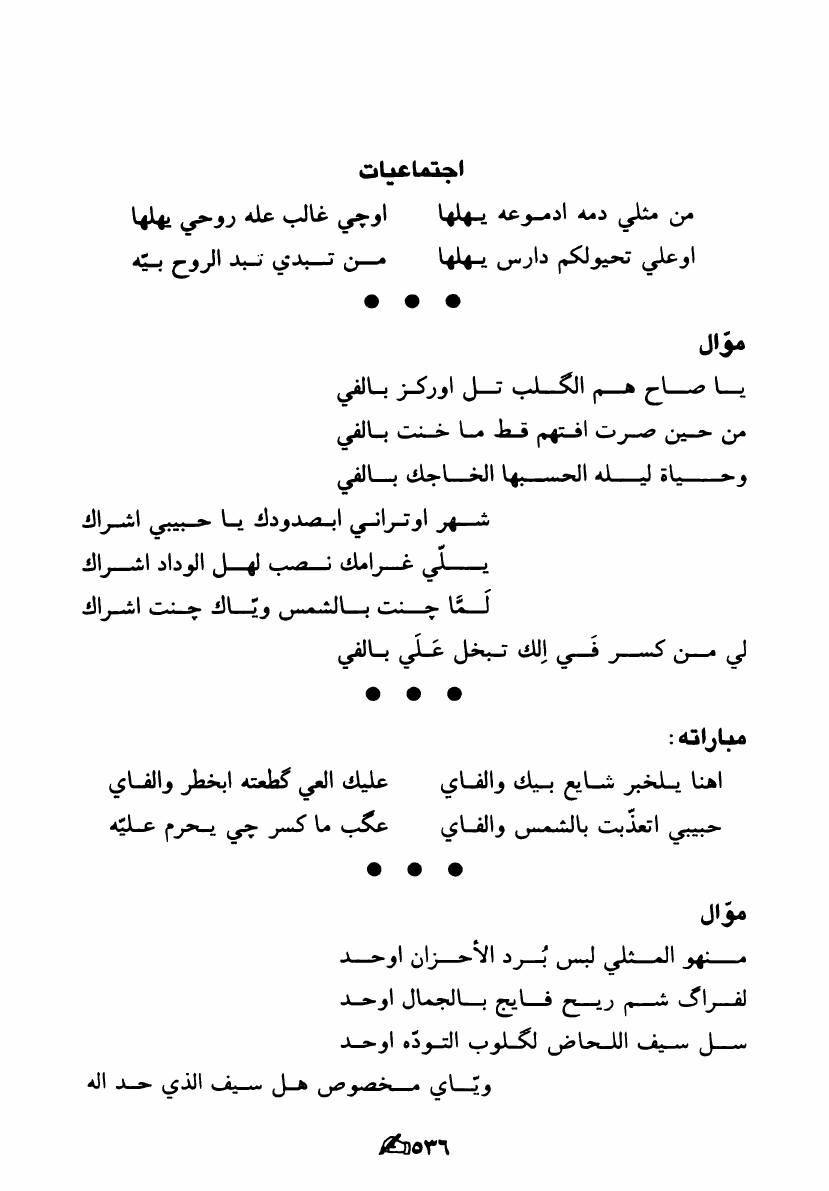 اجتماعيات
من مثلي دمه ادموعه يهلها اوچي غالب عله روحي يهلها
اوعلي تحيولكم دارس يهلها من تبدي نبد الروح بيّه
● ● ●
موّال
يا صاح هم الگلب تل اوركز بالفي
من حين صرت افتهم قط ما خنت بالفي
وحياة ليله الحسبها الخاجك بالفي
شهر اوتراني ابصدودك يا حبيبي اشراك
يلّي غرامك نصب لهل الوداد اشراك
لَمَّا چنت بالشمس ويّاك چنت اشراك
لي من كسر فَي اِلك تبخل عَلَي بالفي
● ● ●
مباراته:
اهنا يلخبر شايع بيك والفاي عليك العي گطعته ابخطر والفاي
حبيبي اتعذّبت بالشمس والفاي عگب ما كسر چي يحرم عليّه
● ● ●
موّال
منهو المثلي لبس بُرد الأحزان اوحد
لفراگ شم ريح فايج بالجمال اوحد
سل سيف اللحاض لگلوب التودّه اوحد
ويّاي مخصوص هل سيف الذي حد اله
٥٣٦